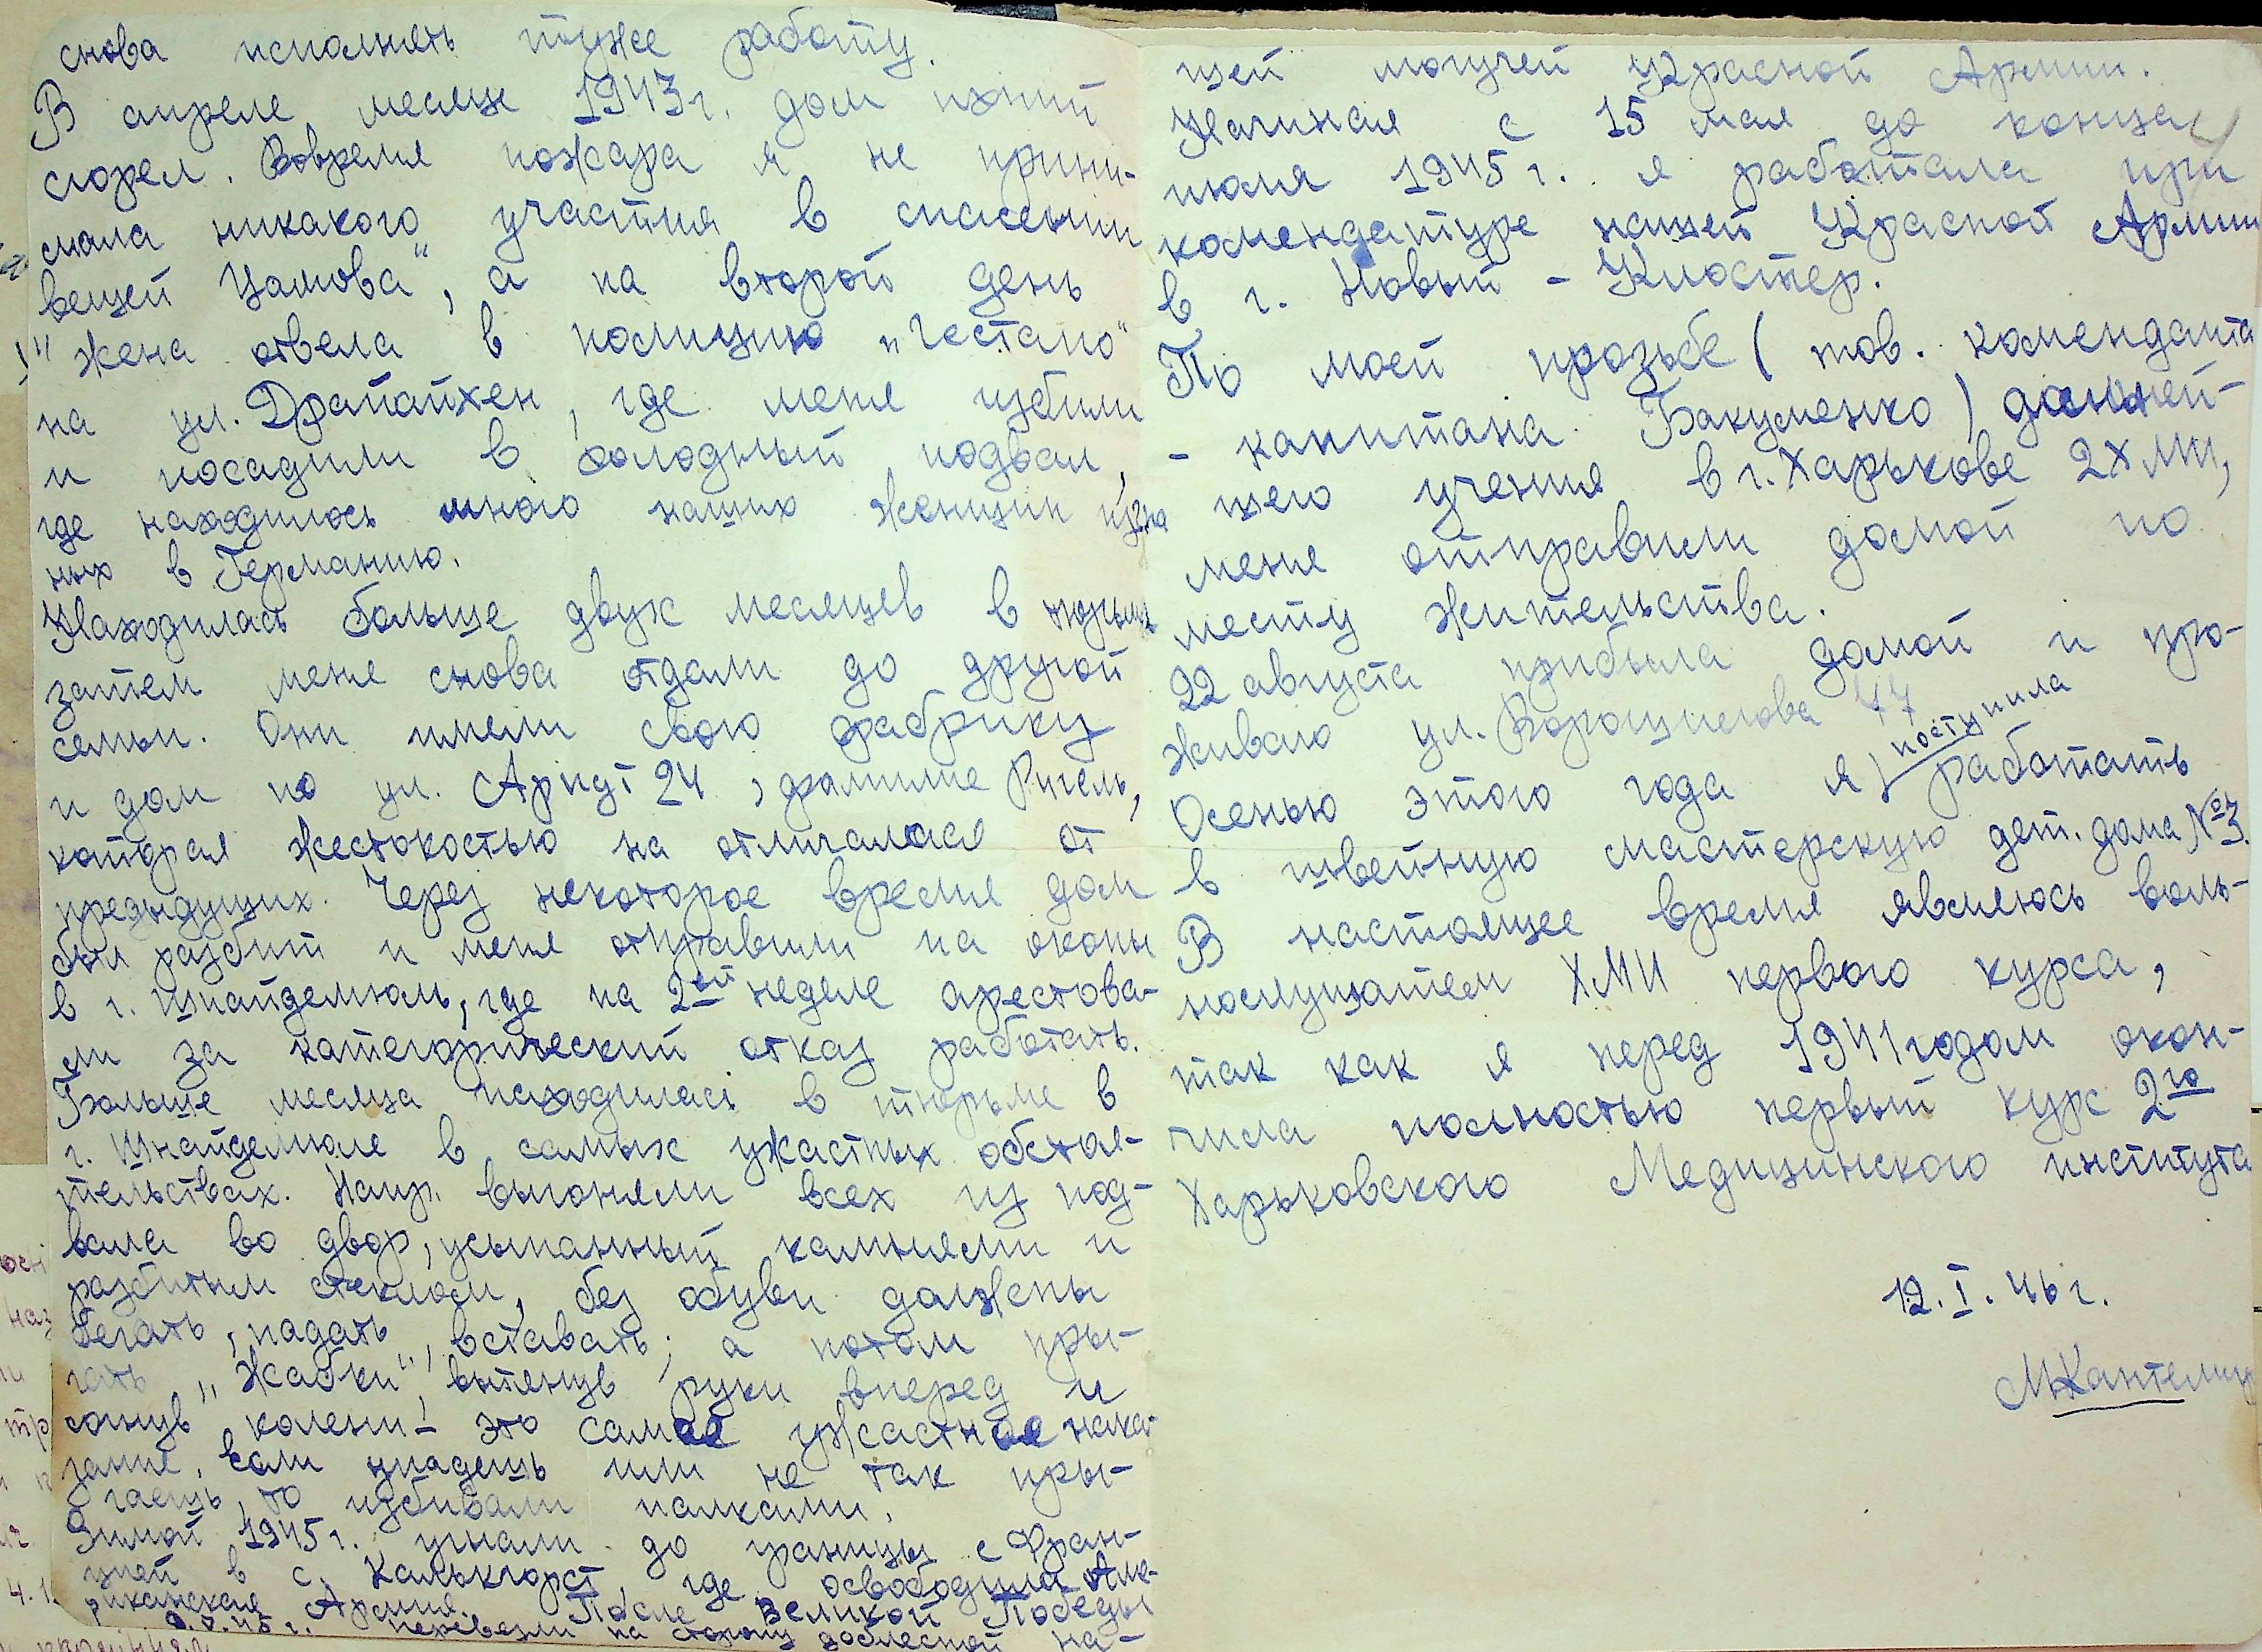 снова исполнять туже работу.
В апреле месяце 1943 г. дом ихний
сгорел. Вовремя пожара я не прини-
мала никакого участия в спасении
вещей Цамова", а на второй день
жена отвела в полицию „гестапо"
на ул. Драйайхен, где меня избили
и посадили в холодный подвал,
где находилось много наших женщин изгна
ных в Германию.
Находилась больше двух месяцев в тюрьме
затем меня снова отдали до другой
семьи. Они имели свою фабрику
и дом по ул. Арндт 24, фамилие Ригель,
которая жестокостью на отличалася от
предыдущих. Через некоторое время дом
был разбит и меня отправили на окопы
в г. Шнайдемюль, где на 2ой неделе арестова-
ли за категорический отказ работать.
Больше месяца находиласі в тюрьме в
г. Шнайдемюле в самых ужастных обстоя-
тельствах. Напр. выгоняли всех из под-
вала во двор, усыпанный камнями и
разбитым стеклом, без обуви должны
бегать, падать, вставать; а потом пры-
гать „жабки", вытянув руки вперед и
согнув колени – это самое ужастное нака-
зание. Если упадешь или не так пры-
гаешь, то избивали палками.
Зимой 1945 г. угнали до границы с Фран-
цией в с. Калькгорст, где освободила Аме-
риканская Армия. После Великой Победы
9.V.45 г. перевезли на сторону доблестной на-
шей могучей Красной Армии.
Начиная с 15 мая до конца
июля 1945 г. я работала при
комендатуре нашей Красной Армии
в г. Новый – Клостер.
По моей прозьбе (тов. коменданта
– капитана Бакуменко) дальней-
шего учения в г. Харькове 2 ХМИ,
меня отправили домой по
месту жительства.
22 августа прибыла домой и про-
живаю ул. Ворошилова 47
Осенью этого года я поступила работать
в швейную мастерскую дет. дома №3.
В настоящее время являюсь воль-
нослушателем ХМИ первого курса,
так как я перед 1941 годом окон-
чила полностью первый курс 2го
Харьковского Медицинского института
12.I.46 г.
МКантемир